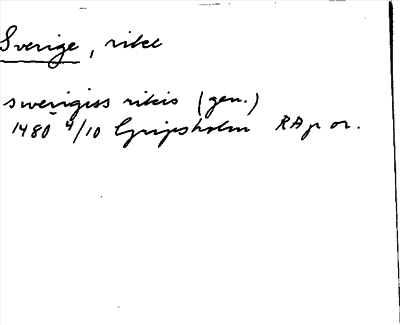 Sverige, rike
swerigiss rikis (gen.)
1480 4/10 Gripsholm RAp or.